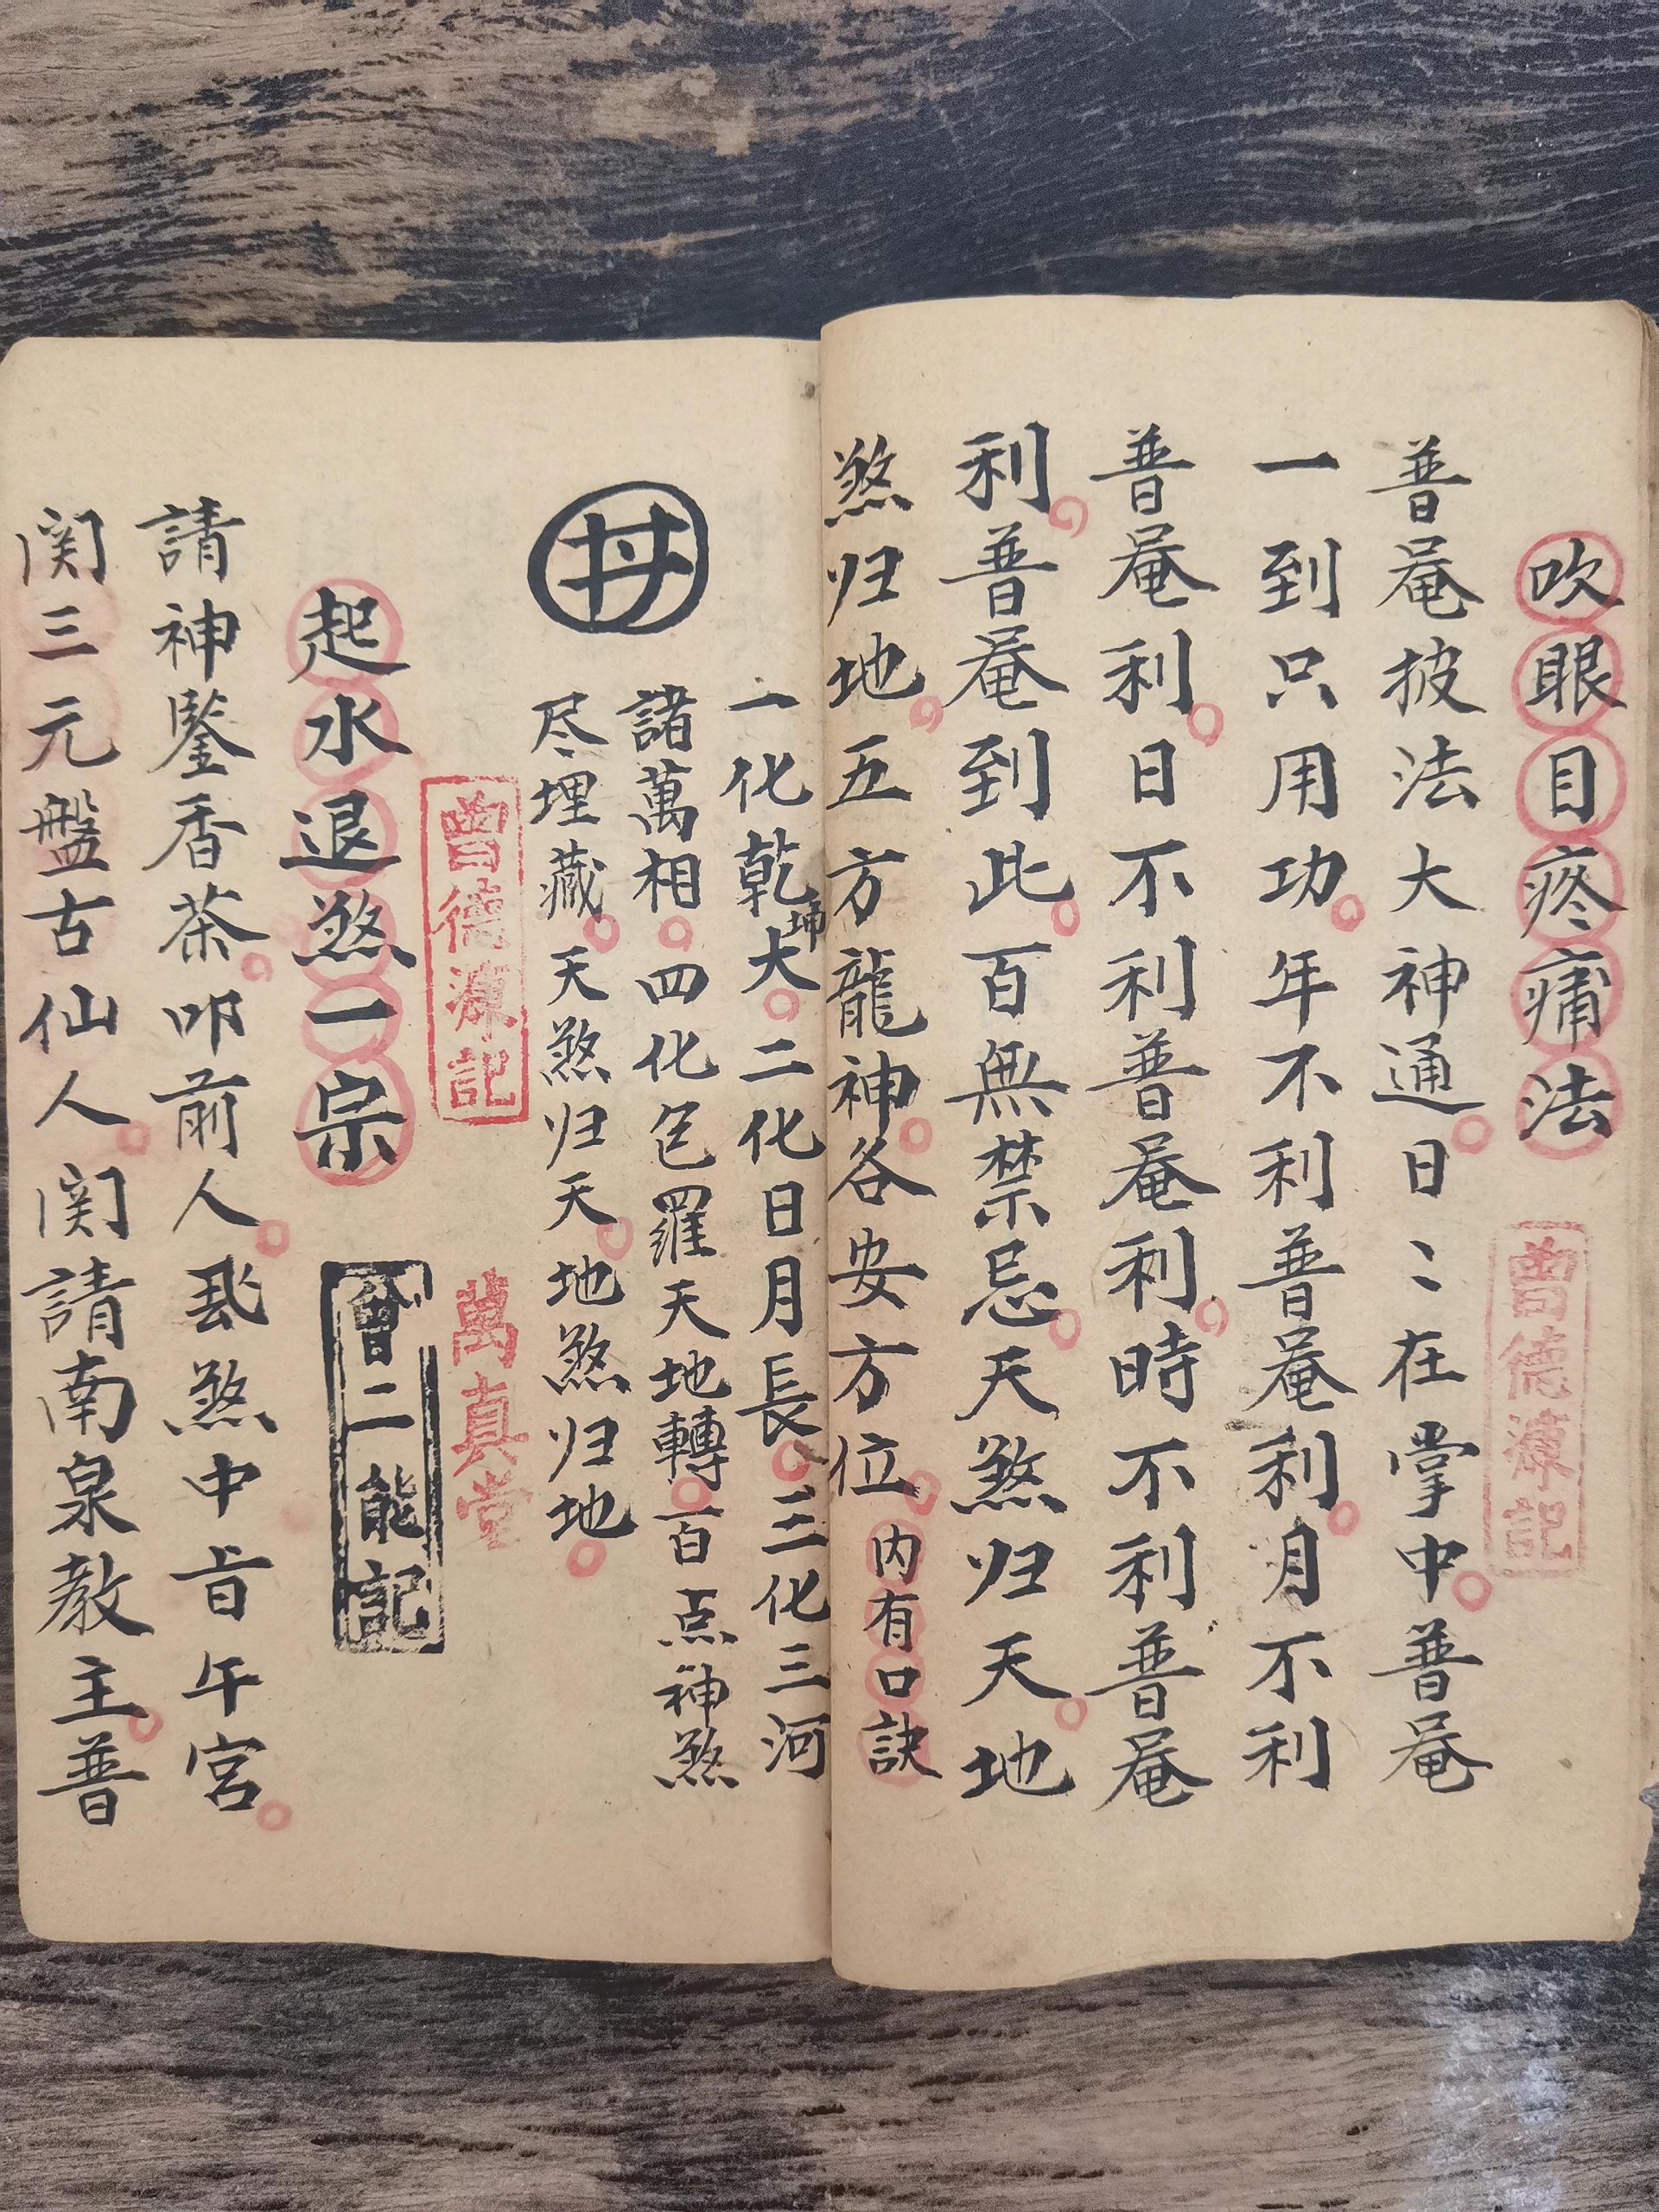 吹眼目疼痛法
曾德源記
普菴披法大神通日〻在掌中普菴
一到只用功年不利普菴利月不利
普菴利日不利普菴利時不利普菴
利普菴到此百無禁忌天煞归天地
煞归地五方龍神各安方位内有口訣
一化乾坤大二化日月長三化三河
諸萬相四化包羅天地轉百点神煞
尽埋藏天煞归天地煞归地
曾德源記
萬真堂
起水退煞一宗
曾二能記
請神鑒香茶叩前人煞中午宮
関三元盤古仙人関請南泉教主普